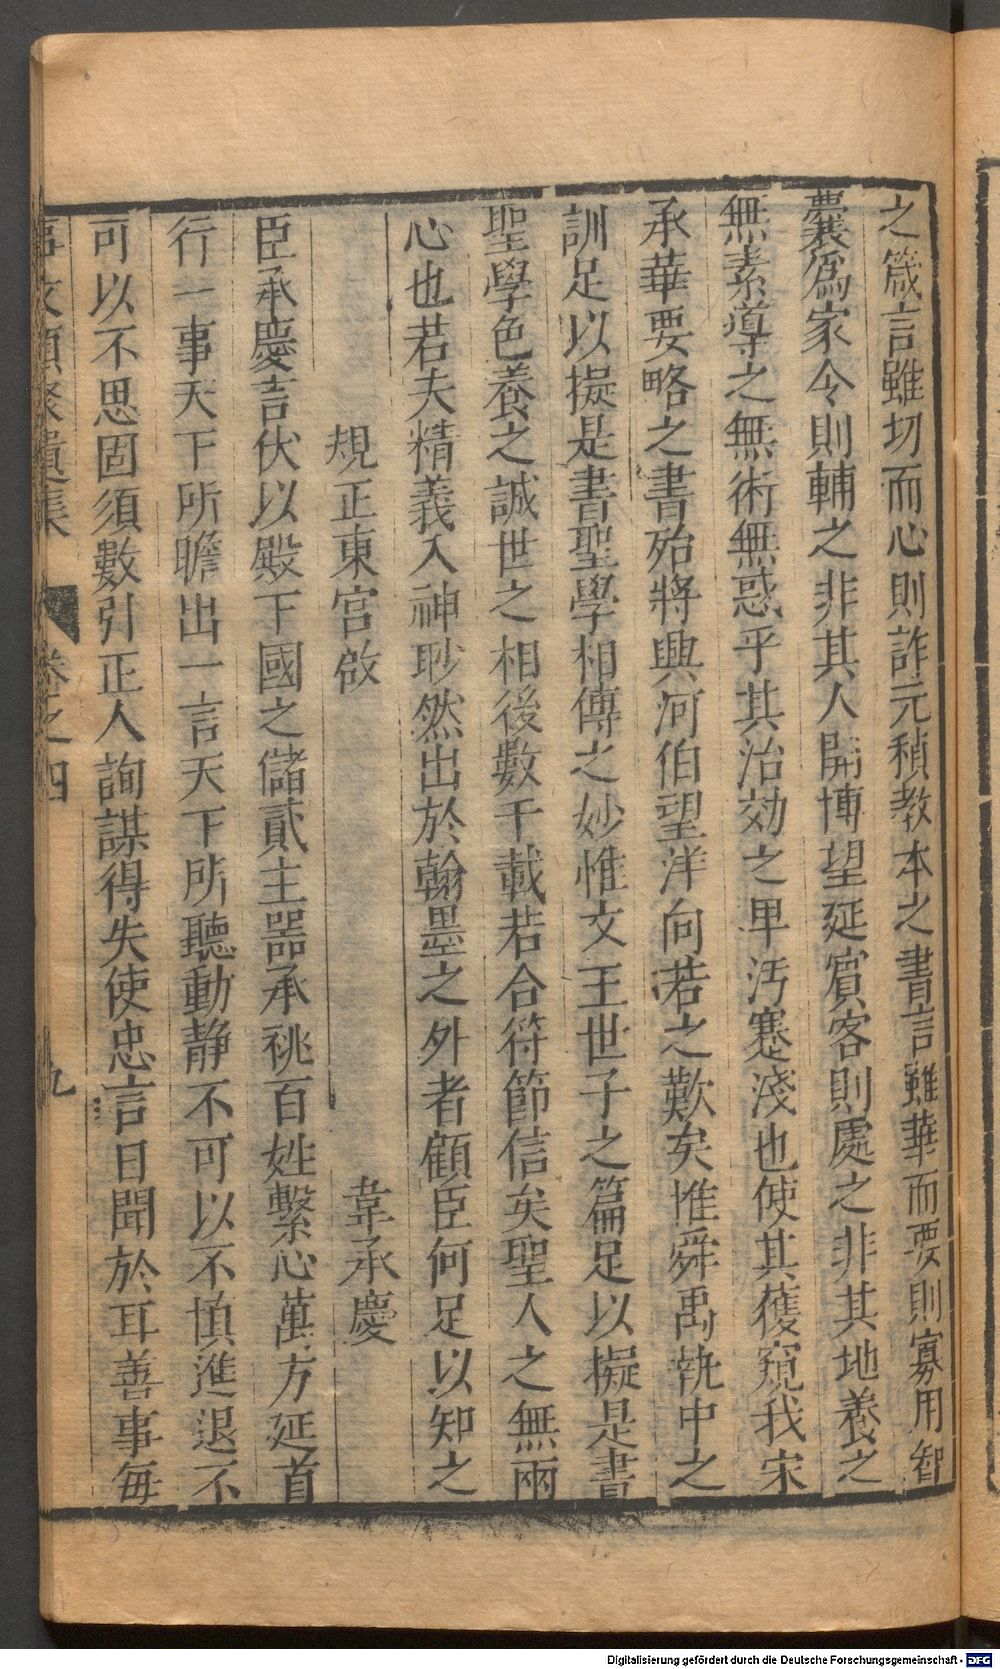 之箴言雖切而心則詐元稹教本之書言雖華而要則寡用智
囊爲家令則輔之非其人開博望延賔客則處之非其地養之
無素導之無術無惑乎其治効之卑汚蹇淺也使其獲窺我宋
承華要略之書殆將興河伯望洋向若之歎矣惟舜禹執中之
訓足以擬是書聖學相傳之妙惟文王世子之篇足以擬是書
聖學色養之誠世之相後數千載若合符節信矣聖人之無兩
心也若夫精義入神眇然出於翰墨之外者顧臣何足以知之
規正東宮啟 韋承慶
臣承慶言伏以殿下國之儲貳主器承祧百姓繫心萬方延首
行一事天下所瞻出一言天下所聽動靜不可以不慎進退不
可以不思固須數引正人詢謀得失使忠言日聞於耳善事每
事文類聚遺集 卷之四 九
Digitalisierung gefördert durch die Deutsche Forschungsgemeinschaft - DFG